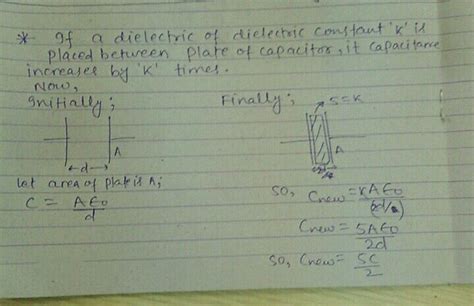 * If a dielectric of dielectric constant 'K' is
placed between plate of capacitor, it capacitance
increases by 'K' times.
Now,
Initially;
A
←d→
let area of plate is A;
C = Aε0/d
Finally;
5=K
A
so, Cnew = KAε0
Cnew = 5Aε0/2d
so, Cnew = 5C/2